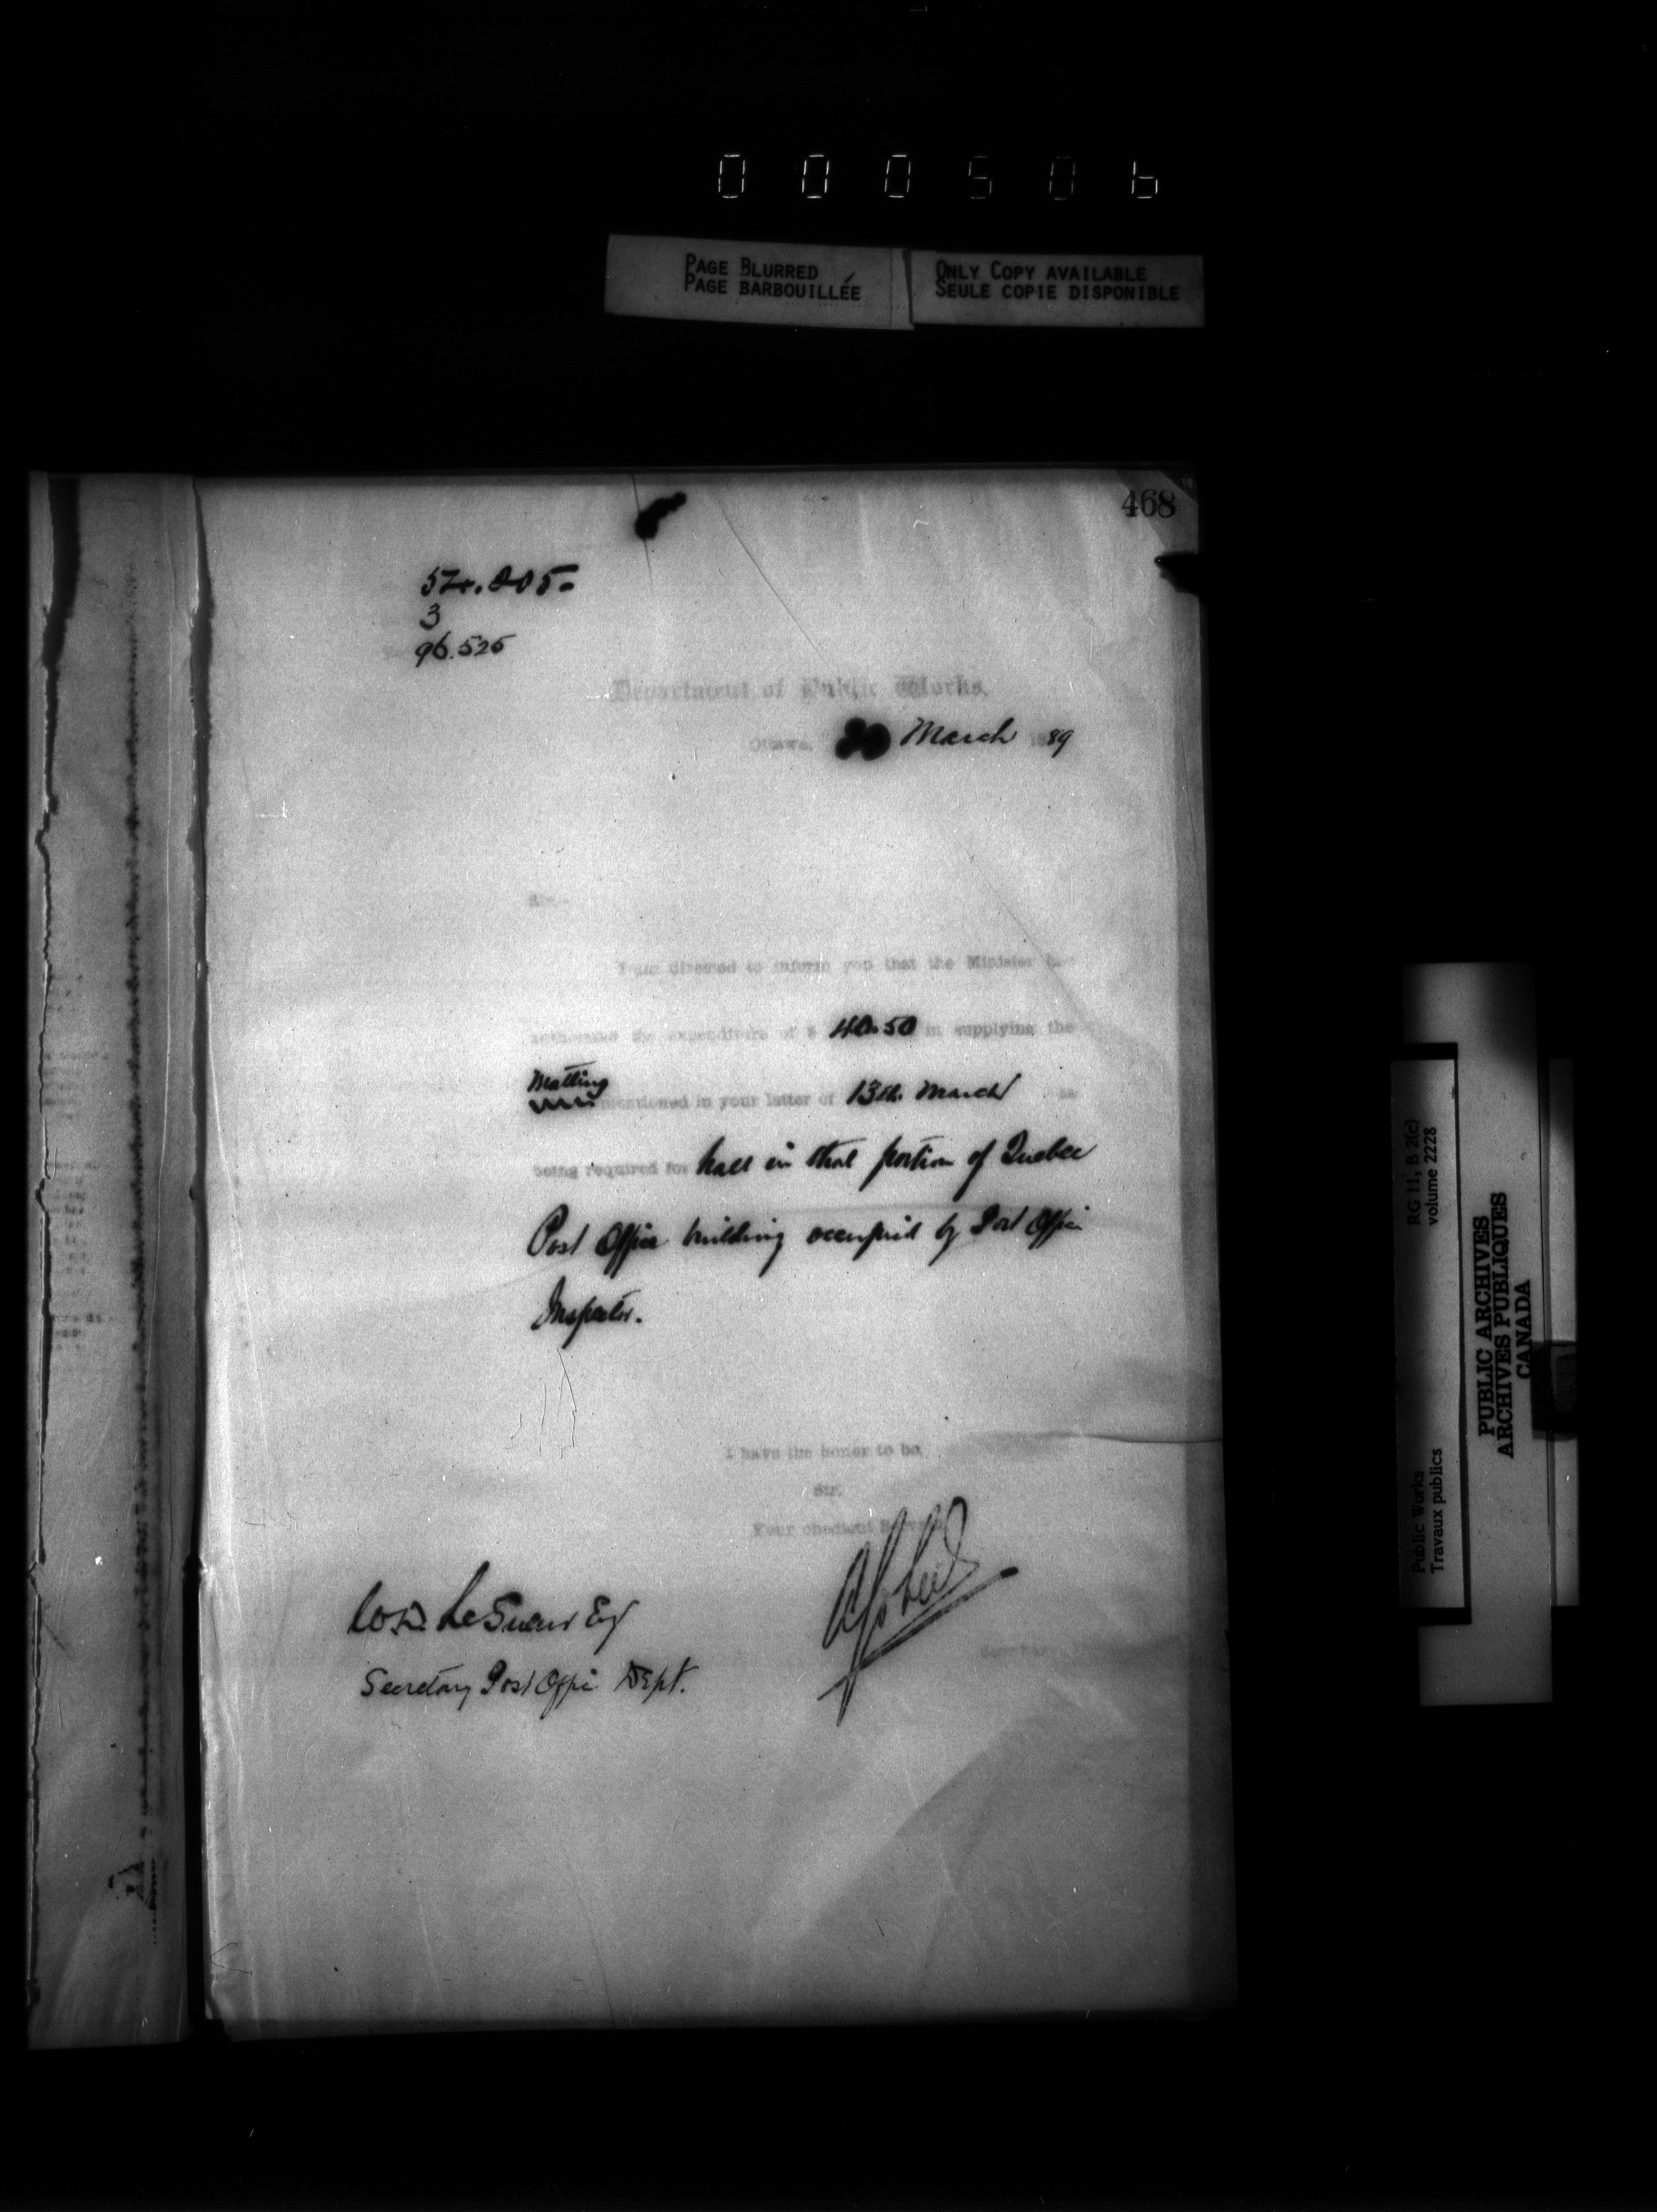 000506
PAGE BLURRED
PAGE BARBOUILLÉE
ONLY COPY AVAILABLE
SEULE COPIE DISPONIBLE
468
3
96.525
Department of Public Works,
Ottawa, March 1889
Sir,-
I am directed to inform you that the Minister has
authorized the expenditure of $ 40.50 in supplying the
Matting
mentioned in your letter of 13th March as
being required for hall in that portion of Quebec
Post Office building occupied by Post Office
Inspector.
I have the honor to be,
Sir,
Your obedient Servant
W.D. LeSueur Esq
Secretary Post Office Dept.
Secretary.
Public Works
Travaux publics
RG 11, B 2(c)
volume 2228
PUBLIC ARCHIVES
ARCHIVES PUBLIQUES
CANADA